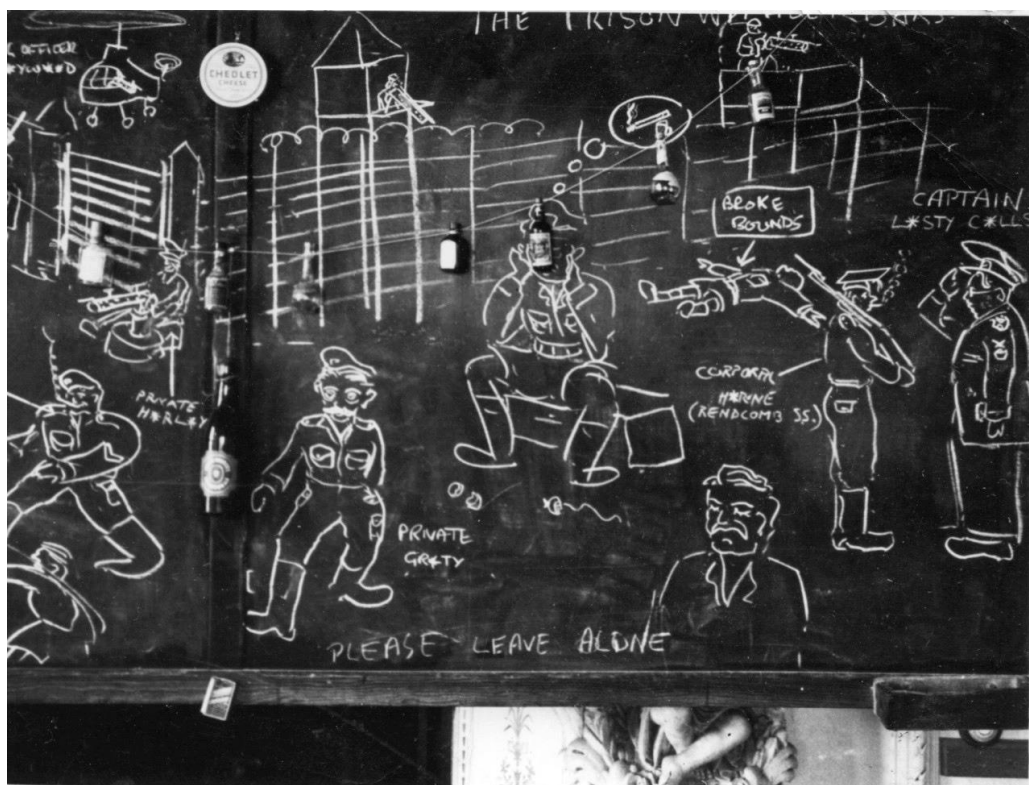 THE PRISON W
OFFICER
CHEDLET
CHEESE
BROKE
BOUNDS
CAPTAIN
L*STY C*LL
PRIVATE
H*RL*Y
CORPORAL
H*RNE
(RENDCOMB S.S.)
PRIVATE
GR*TY
PLEASE LEAVE ALONE